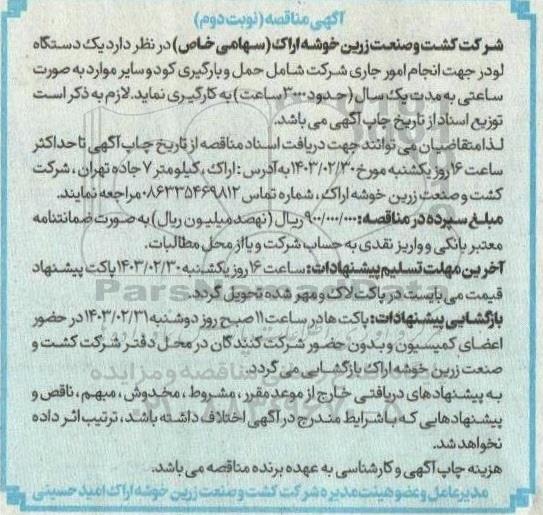 آگهی مناقصه (نوبت دوم)
شرکت کشت و صنعت زرین خوشه اراک (سهامی خاص) در نظر دارد یک دستگاه
لودر جهت انجام امور جاری شرکت شامل حمل و بارگیری کود و سایر موارد به صورت
ساعتی به مدت یک سال (حدود ۳۰۰۰ ساعت) به کارگیری نماید. لازم به ذکر است
توزیع اسناد از تاریخ چاپ آگهی می باشد.
لذا متقاضیان می توانند جهت دریافت اسناد مناقصه از تاریخ چاپ آگهی تا حداکثر
ساعت ۱۶ روز یکشنبه مورخ ۱۴۰۳/۰۲/۳۰ به آدرس : اراک ، کیلومتر ۷ جاده تهران ، شرکت
کشت و صنعت زرین خوشه اراک ، شماره تماس ۰۸۶۳۳۵۴۶۹۸۱۲ مراجعه نمایند.
مبلغ سپرده در مناقصه: ۹۰۰/۰۰۰/۰۰۰ ریال (نهصد میلیون ریال) به صورت ضمانتنامه
معتبر بانکی و واریز نقدی به حساب شرکت و یا از محل مطالبات.
آخرین مهلت تسلیم پیشنهادات: ساعت ۱۶ روز یکشنبه ۱۴۰۳/۰۲/۳۰ پاکت پیشنهاد
قیمت می بایست در پاکت لاک و مهر شده تحویل گردد.
بازگشایی پیشنهادات: پاکت ها در ساعت ۱۱ صبح روز دوشنبه ۱۴۰۳/۰۲/۳۱ در حضور
اعضای کمیسیون و بدون حضور شرکت کنندگان در محل دفتر شرکت کشت و
صنعت زرین خوشه اراک بازگشایی می گردد.
به پیشنهادهای دریافتی خارج از موعد مقرر ، مشروط ، مخدوش ، مبهم ، ناقص و
پیشنهادهایی که با شرایط مندرج در آگهی اختلاف داشته باشد ، ترتیب اثر داده
نخواهد شد.
هزینه چاپ آگهی و کارشناسی به عهده برنده مناقصه می باشد.
مدیرعامل و عضو هیئت مدیره شرکت کشت و صنعت زرین خوشه اراک امید حسینی
ParsNamadData